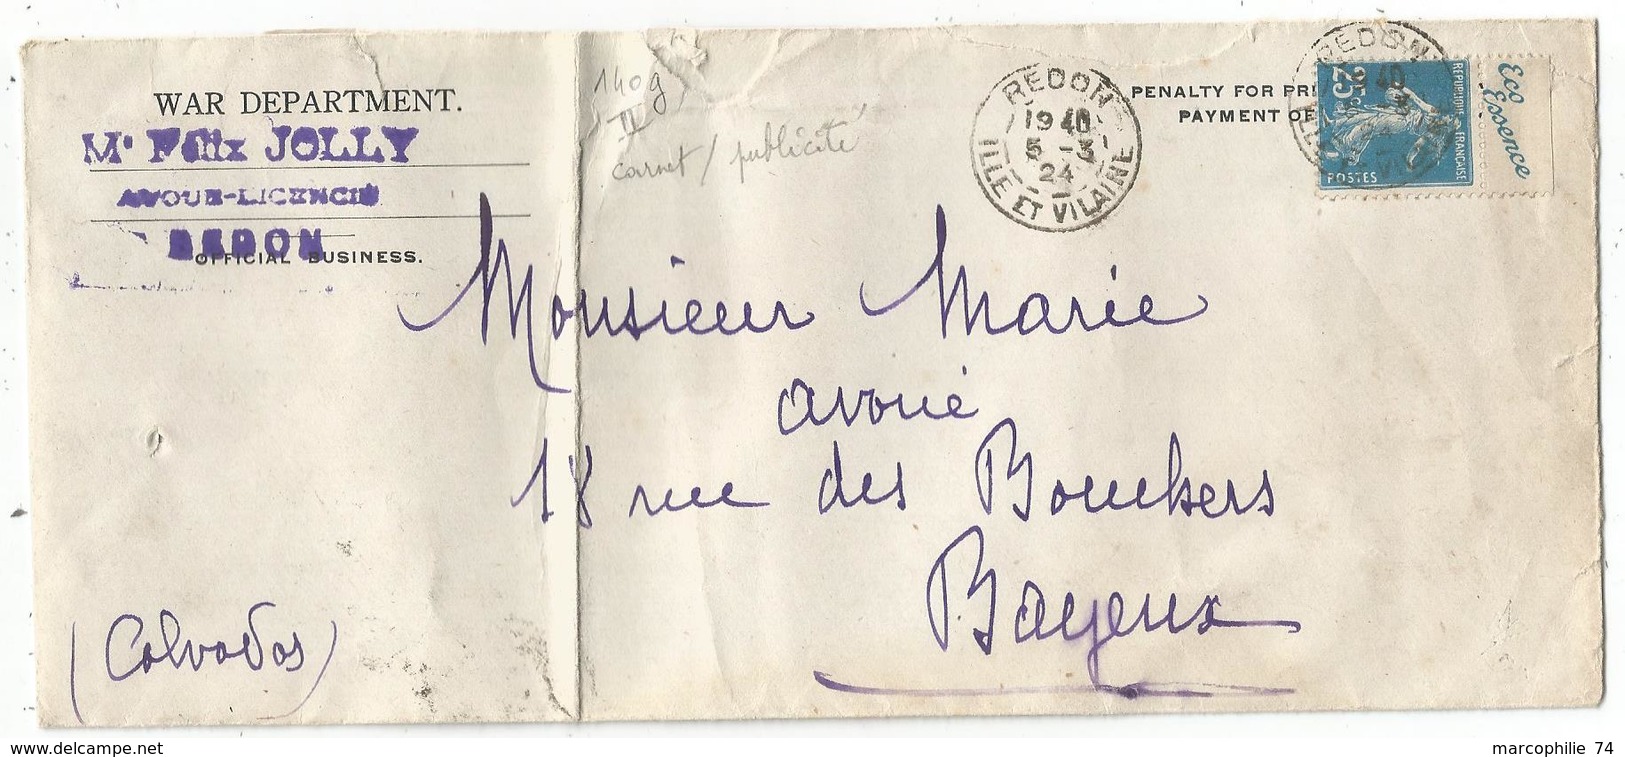 WAR DEPARTMENT.
Mᵉ Félix JOLLY
AVOUÉ-LICENCIÉ
REDON
OFFICIAL BUSINESS.
140g
II
carnet / publicité
REDON
19 40
5 - 3
24
ILLE ET VILAINE
PENALTY FOR PRI
PAYMENT OF
REDON
25c
REPUBLIQUE FRANCAISE
POSTES
Eco
Essence
Monsieur Marie
avoué
18 rue des Bouchers
Bayeux
(Calvados)
www.delcampe.net
marcophilie 74